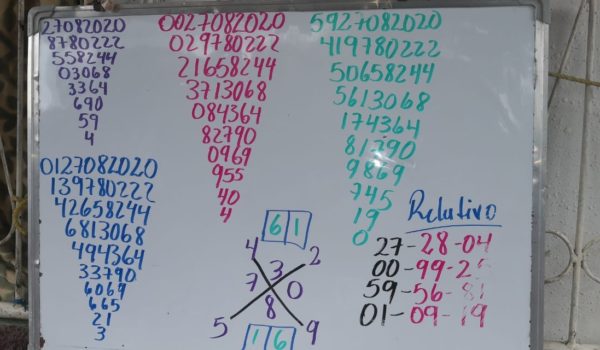 27082020
8780222
558244
03068
3364
690
59
4
0027082020
029780222
21658244
3713068
084364
82790
0969
955
40
4
5927082020
419780222
50658244
5613068
174364
81790
9869
745
19
0
0127082020
139780222
42658244
6813068
494364
33790
6069
665
21
3
6 1
4 2
3
7 0
8
5 9
1 6
Relativo
27-28-04
00-99-25
59-56-81
01-09-19